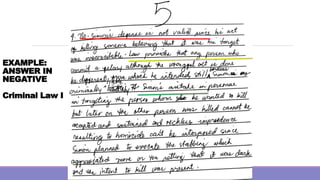 5
EXAMPLE:
ANSWER IN
NEGATIVE
Criminal Law I
4. No. Simon's defense is not valid since his act
of killing someone believing that it was his target
was inexcusable. Law provides that any person who
commit a felony although the wrongful act is done
be different from what he intended still incurs
criminally liability. If Simon's mistake in personae
in targeting the person whom he wanted to kill
but later on the other person was killed cannot be
accepted and sustained and reckless imprudence
resulting to homicide can't be interposed since
Simon planned to execute the stabbing which
appreciated more on the setting that it was dark
and the intent to kill was present.